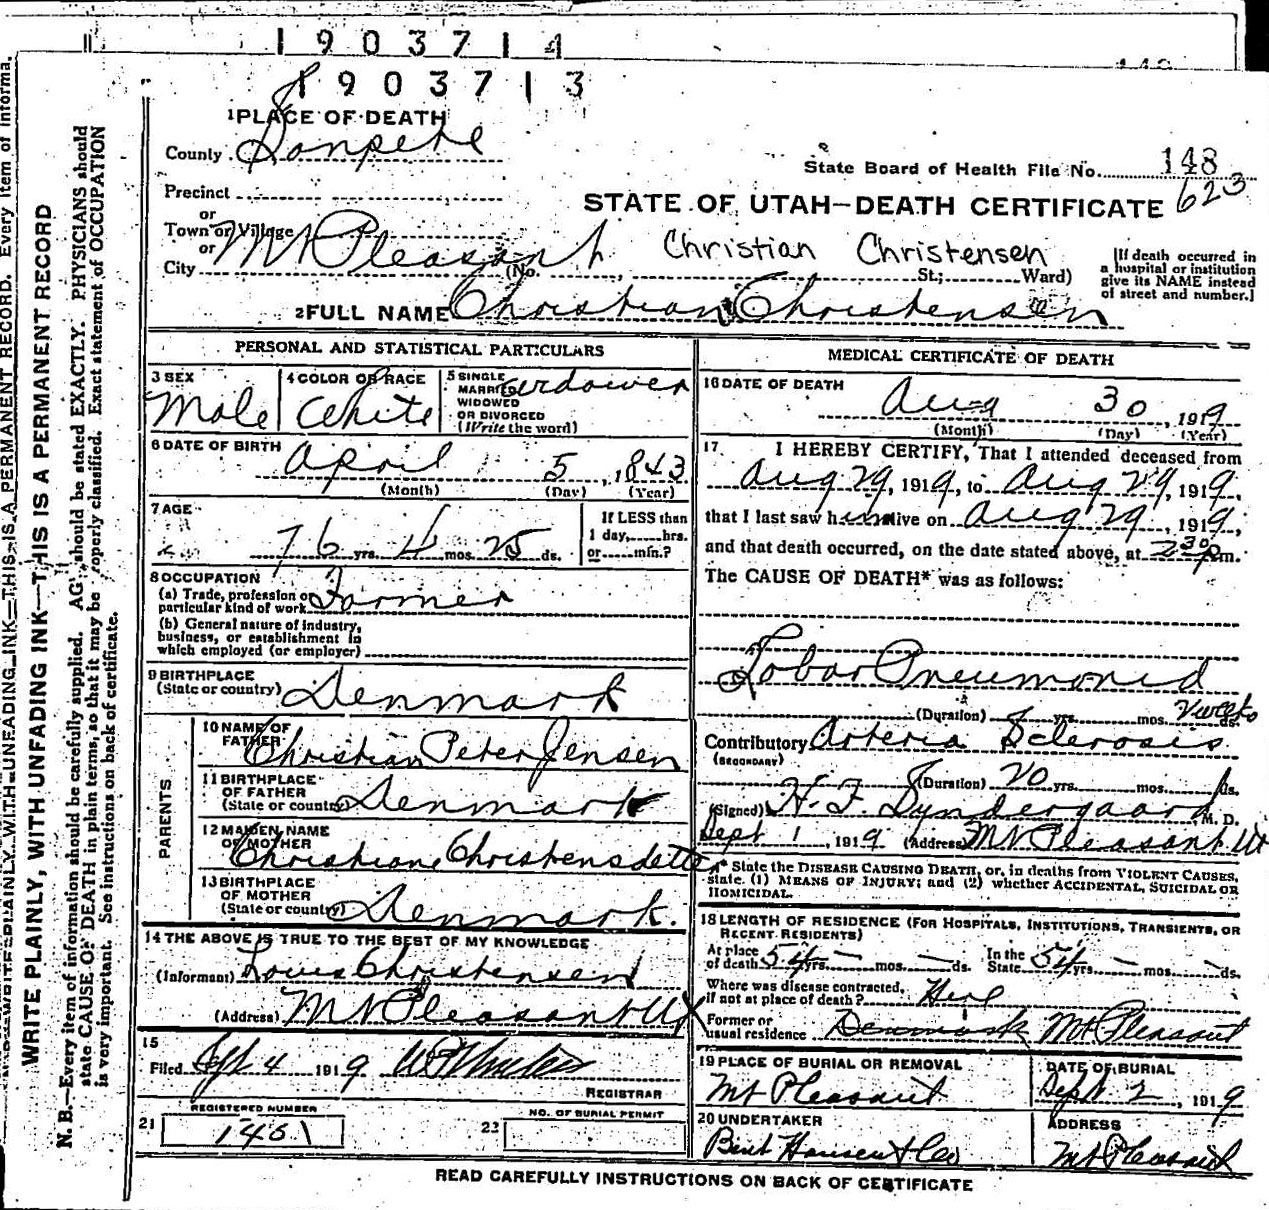 1903714
1903713
1 PLACE OF DEATH
County Sanpete
State Board of Health File No. 148
623
Precinct
STATE OF UTAH—DEATH CERTIFICATE
or
Town or Village Mt Pleasant
or
Christian Christensen
City (No. St; Ward)
[If death occurred in
a hospital or institution
give its NAME instead
of street and number.]
2 FULL NAME Christian Christensen
PERSONAL AND STATISTICAL PARTICULARS
3 SEX Male
4 COLOR OR RACE White
5 SINGLE
MARRIED
WIDOWED
OR DIVORCED
(Write the word)
6 DATE OF BIRTH April 5, 1843
(Month) (Day) (Year)
7 AGE 76 yrs. 4 mos. 25 ds.
If LESS than
1 day, hrs.
or min.?
8 OCCUPATION
(a) Trade, profession or
particular kind of work Farmer
(b) General nature of industry,
business, or establishment in
which employed (or employer)
9 BIRTHPLACE
(State or country) Denmark
PARENTS
10 NAME OF
FATHER Christian Peter Jensen
11 BIRTHPLACE
OF FATHER
(State or country) Denmark
12 MAIDEN NAME
OF MOTHER Christiane Christensdatter
13 BIRTHPLACE
OF MOTHER
(State or country) Denmark.
14 THE ABOVE IS TRUE TO THE BEST OF MY KNOWLEDGE
(Informant) Louis Christensen
(Address) Mt Pleasant Ut
15
Filed Sept 4 1919
REGISTRAR
REGISTERED NUMBER
21 1451
NO. OF BURIAL PERMIT
22
MEDICAL CERTIFICATE OF DEATH
16 DATE OF DEATH
Aug 30, 1919
(Month) (Day) (Year)
17. I HEREBY CERTIFY, That I attended deceased from
Aug 29, 1919, to Aug 29, 1919,
that I last saw him alive on Aug 29, 1919,
and that death occurred, on the date stated above, at 2 30 p m.
The CAUSE OF DEATH* was as follows:
Lobar Pneumonia
(Duration) yrs. mos. 2 weeks ds.
Contributory Arteria Sclerosis
(SECONDARY)
(Duration) 20 yrs. mos. ds.
(Signed) H. F. Syndergaard M. D.
Sept 1, 1919 (Address) Mt Pleasant Ut
* State the DISEASE CAUSING DEATH, or, in deaths from VIOLENT CAUSES,
state (1) MEANS OF INJURY; and (2) whether ACCIDENTAL, SUICIDAL OR
HOMICIDAL.
18 LENGTH OF RESIDENCE (FOR HOSPITALS, INSTITUTIONS, TRANSIENTS, OR
RECENT RESIDENTS)
At place
of death 54 yrs. — mos. — ds.
In the
State 54 yrs. — mos. — ds.
Where was disease contracted,
if not at place of death? Here
Former or
usual residence Denmark Mt Pleasant
19 PLACE OF BURIAL OR REMOVAL
Mt Pleasant
DATE OF BURIAL
Sept 2, 1919
20 UNDERTAKER
Hansen & Co
ADDRESS
Mt Pleasant
READ CAREFULLY INSTRUCTIONS ON BACK OF CERTIFICATE
WRITE PLAINLY, WITH UNFADING INK—THIS IS A PERMANENT RECORD
N. B.—Every item of information should be carefully supplied. AGE should be stated EXACTLY. PHYSICIANS should
state CAUSE OF DEATH in plain terms, so that it may be properly classified. Exact statement of OCCUPATION
is very important. See instructions on back of certificate.
WRITE PLAINLY WITH UNFADING INK—THIS IS A PERMANENT RECORD. Every item of informa